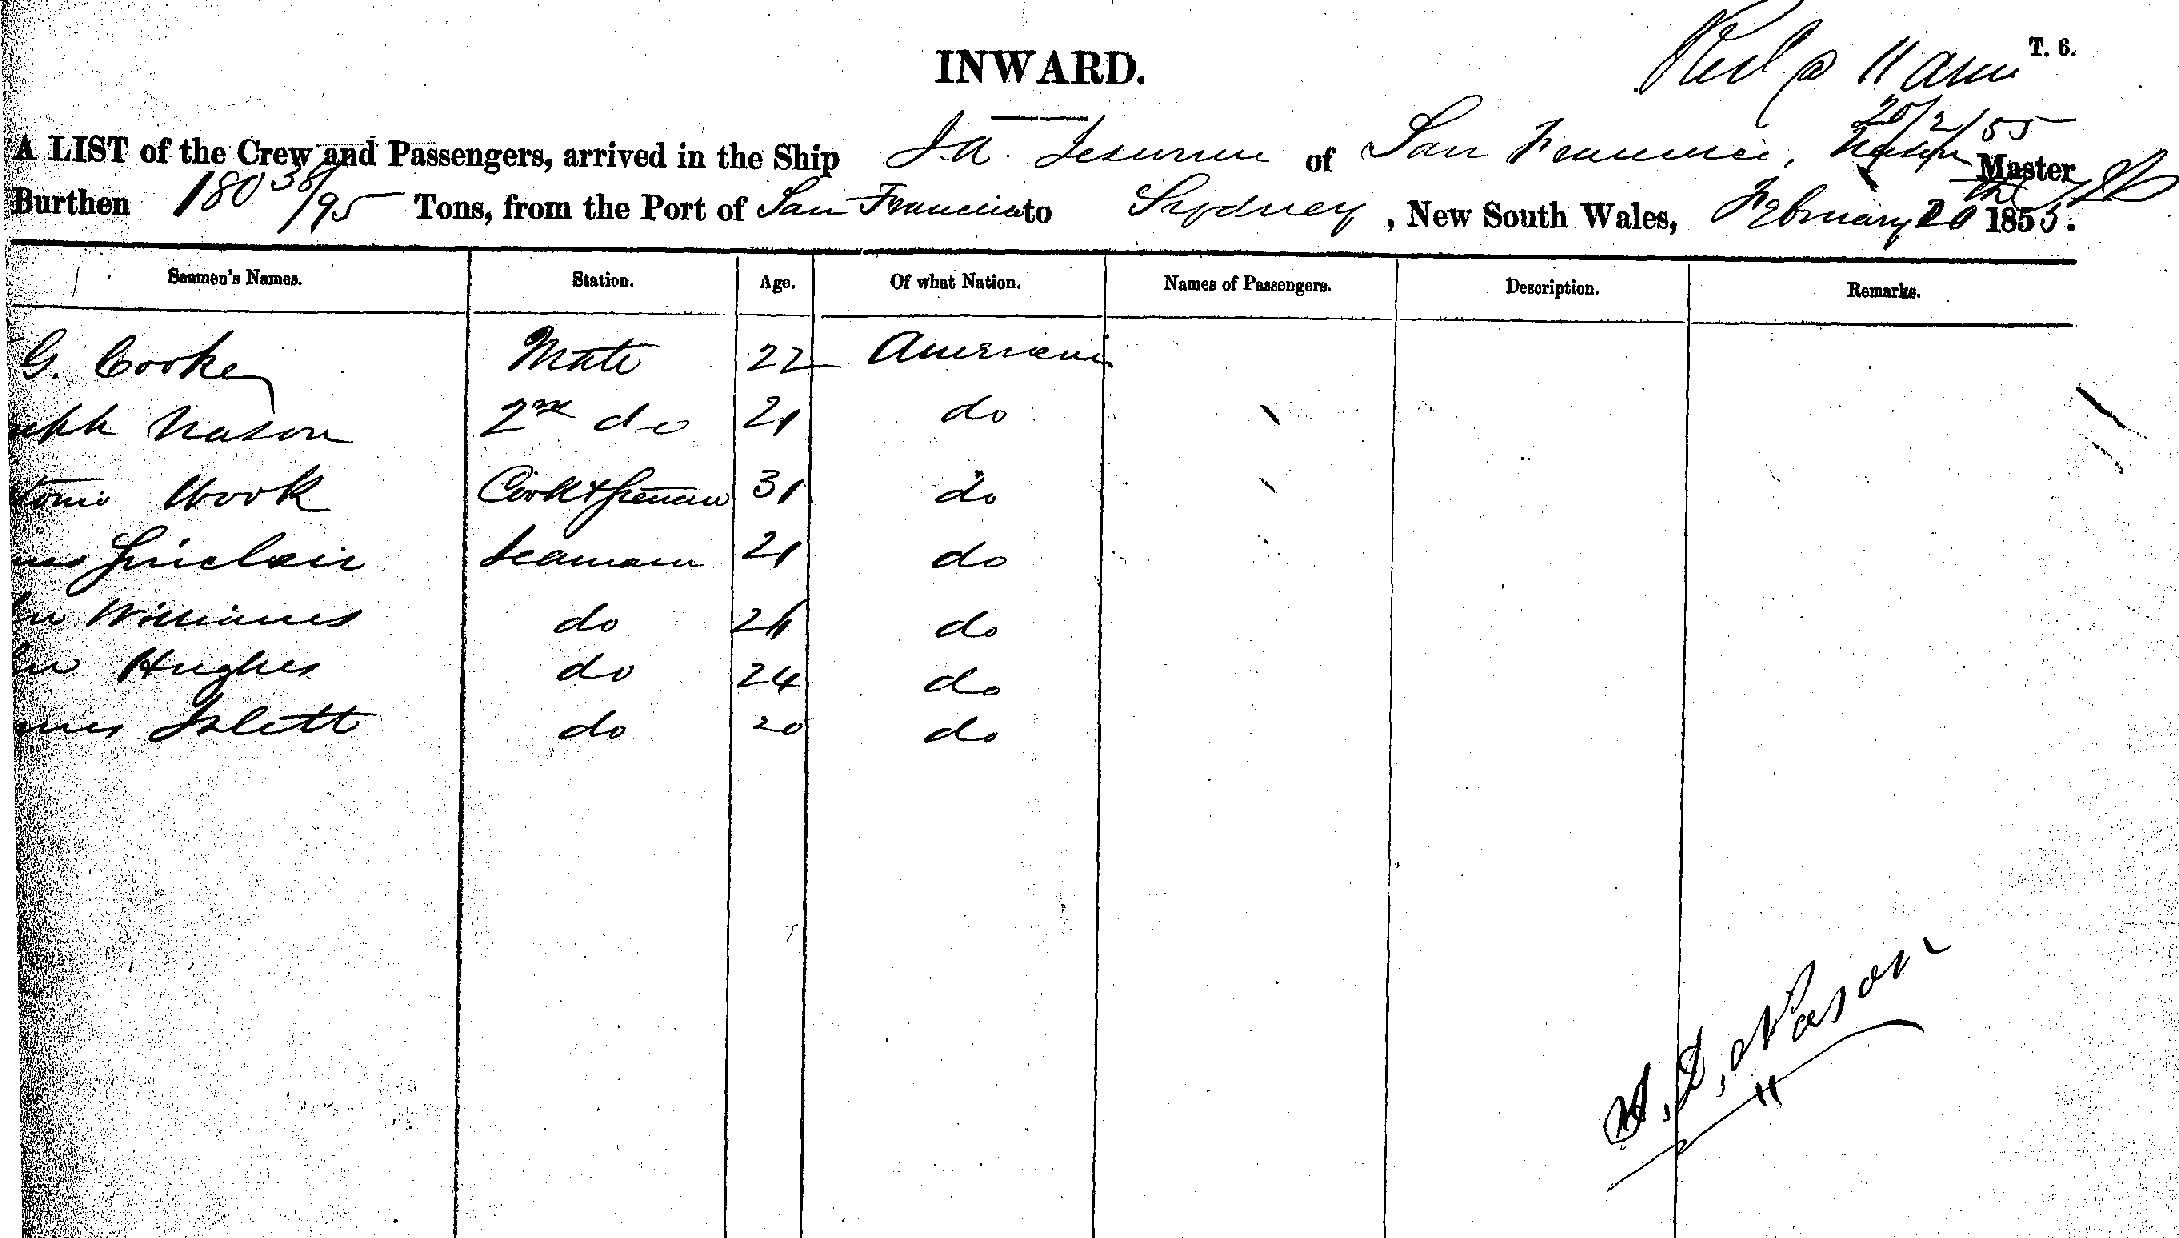 INWARD.
T. 6.
Recd @ 11 am
20/2/55
A LIST of the Crew and Passengers, arrived in the Ship J. A. Jesurun of San Francisco, Nason Master
Burthen 180 38/95 Tons, from the Port of San Francisco to Sydney, New South Wales, February 20th 1855.
Seamen's Names. Station. Age. Of what Nation. Names of Passengers. Description. Remarks.
G. Cooke Mate 22 American
eph Nason 2nd do 21 do
tonio Wook Cook & Seaman 31 do
mes Sinclair Seaman 21 do
hn Williams do 26 do
hn Hughes do 24 do
mes Islett do 20 do
Nason